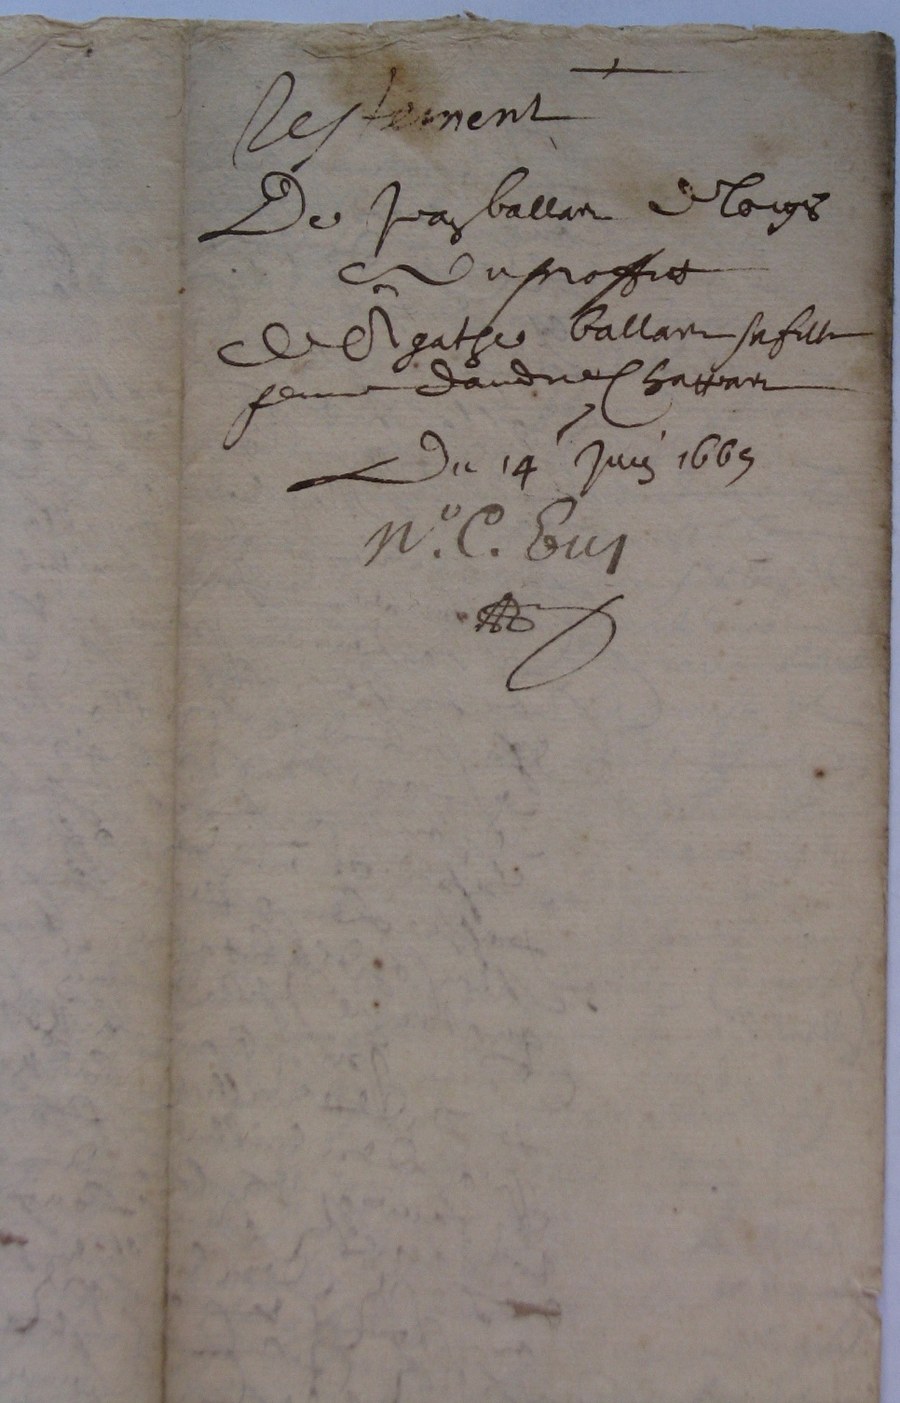 Testement
De Jean ballan
Du proffit
de Agathe ballan sa fille
femme dandre Chattan
Du 14 Juin 1665
N.° C.